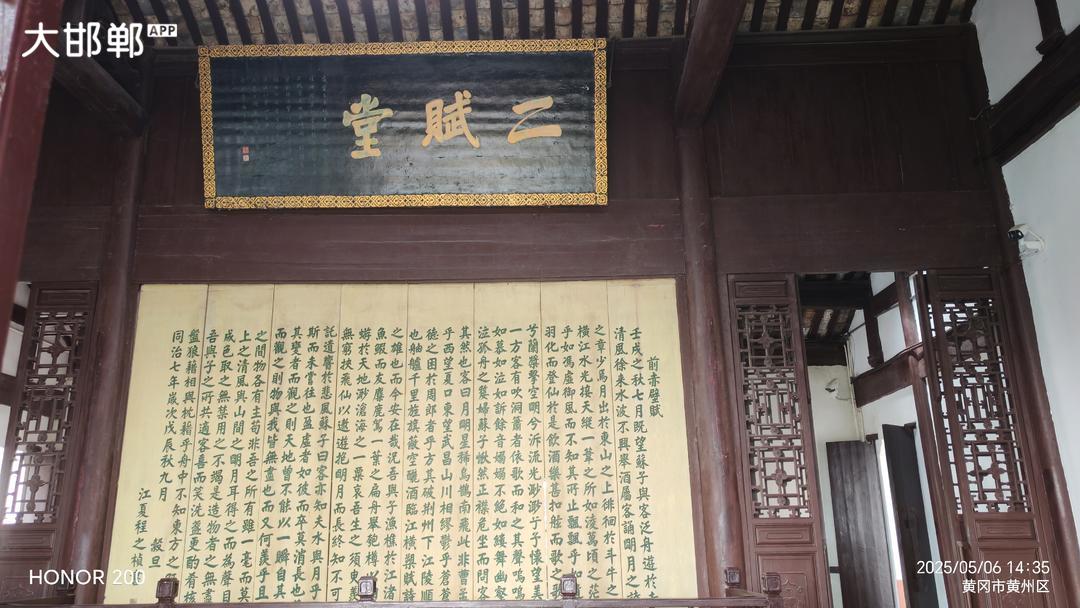 大邯郸APP
二賦堂
前赤壁賦
壬戌之秋七月既望蘇子與客泛舟遊於
清風徐來水波不興舉酒屬客誦明月之
之章少焉月出於東山之上徘徊於斗牛之
橫江水光接天縱一葦之所如淩萬頃之茫
乎如馮虛御風而不知其所止飄飄乎如
羽化而登仙於是飲酒樂甚扣舷而歌之歌
兮蘭槳擊空明兮泝流光渺渺兮予懷望美
一方客有吹洞簫者依歌而和之其聲嗚嗚
如慕如泣如訴餘音嫋嫋不絕如縷舞幽壑
泣孤舟之嫠婦蘇子愀然正襟危坐而問客
其然也客曰月明星稀烏鵲南飛此非曹孟
乎西望夏口東望武昌山川相繆鬱乎蒼蒼
德之困於周郎者乎方其破荊州下江陵順
也舳艫千里旌旗蔽空釃酒臨江橫槊賦詩
之雄也而今安在哉況吾與子漁樵於江渚
魚蝦而友麋鹿駕一葉之扁舟舉匏樽
蜉於天地渺滄海之一粟哀吾生之須臾羨
無窮挾飛仙以遨遊抱明月而長終知不可
託遺響於悲風蘇子曰客亦知夫水與月乎
斯而未嘗往也盈虛者如彼而卒莫消長也
其變者而觀之則天地曾不能以一瞬自其
而觀之則物與我皆無盡也而又何羨乎且
之間物各有主苟非吾之所有雖一毫而莫
上之清風與山間之明月耳得之而為聲目
成色取之無禁用之不竭是造物者之無盡
吾與子之所共適客喜而笑洗盞更酌肴核
盤狼藉相與枕藉乎舟中不知東方之
同治七年歲次戊辰秋九月
穀旦
江夏程之楨
HONOR 200
2025/05/06 14:35
黄冈市黄州区